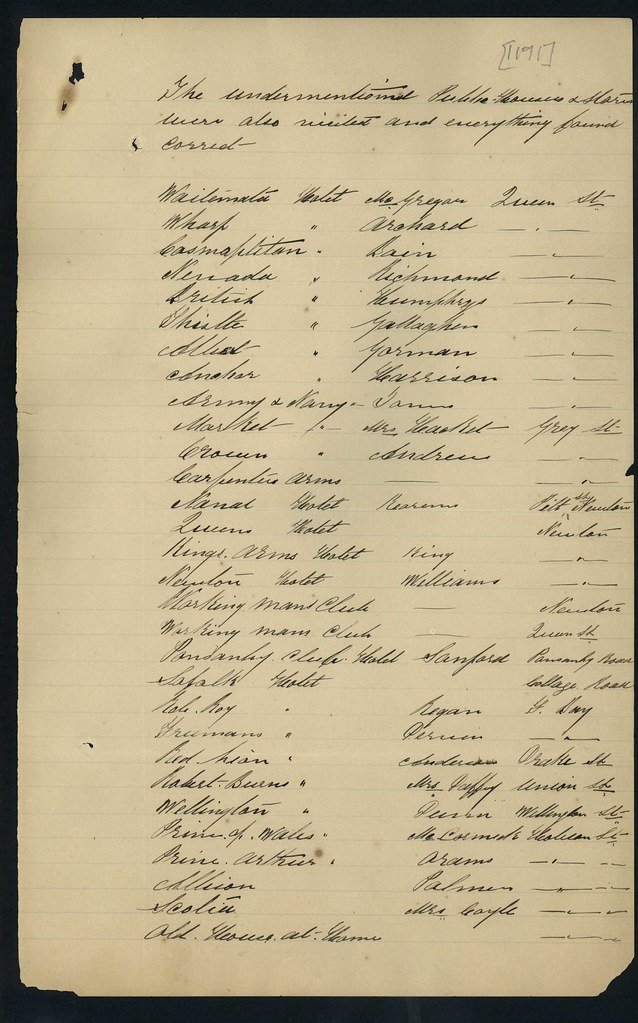 [1191]
The undermentioned Public Houses & Stores
were also visited and everything found
correct
Waitemata Hotel McGregor Queen St.
Wharf " Archard — " —
Cosmoplitan " Bain — " —
Nevada " Richmond — " —
British " Humphrys — " —
Thistle " Gallagher — " —
Albert " Gorman — " —
Anchor " Harrison — " —
Army & Navy " Jones — " —
Market " Mrs Hacket Grey St
Crown " Andrews — " —
Carpenters Arms — — " —
Naval Hotel Pitt St Newton
Queens Hotel Newton
Kings. Arms Hotel King — " —
Newton Hotel Williams — " —
Working Mans Club — Newton
Working mans Club — Queen St
Ponsonby Club Hotel Sanford Ponsonby Road
Sufolk Hotel College Road
Rob. Roy " Regan F. Bay
Freemans " — " —
Red Lion " Anderson Drake St
Robert. Burns " Mrs Daffy Union St.
Wellington " Dunn Wellington St.
Prince of Wales " McCormick Hobson St.
Prince. Arthur " Adams — " —
Albion Palmer — " —
Scotia Mrs Coyle — " —
Old. House. at. Home — " —